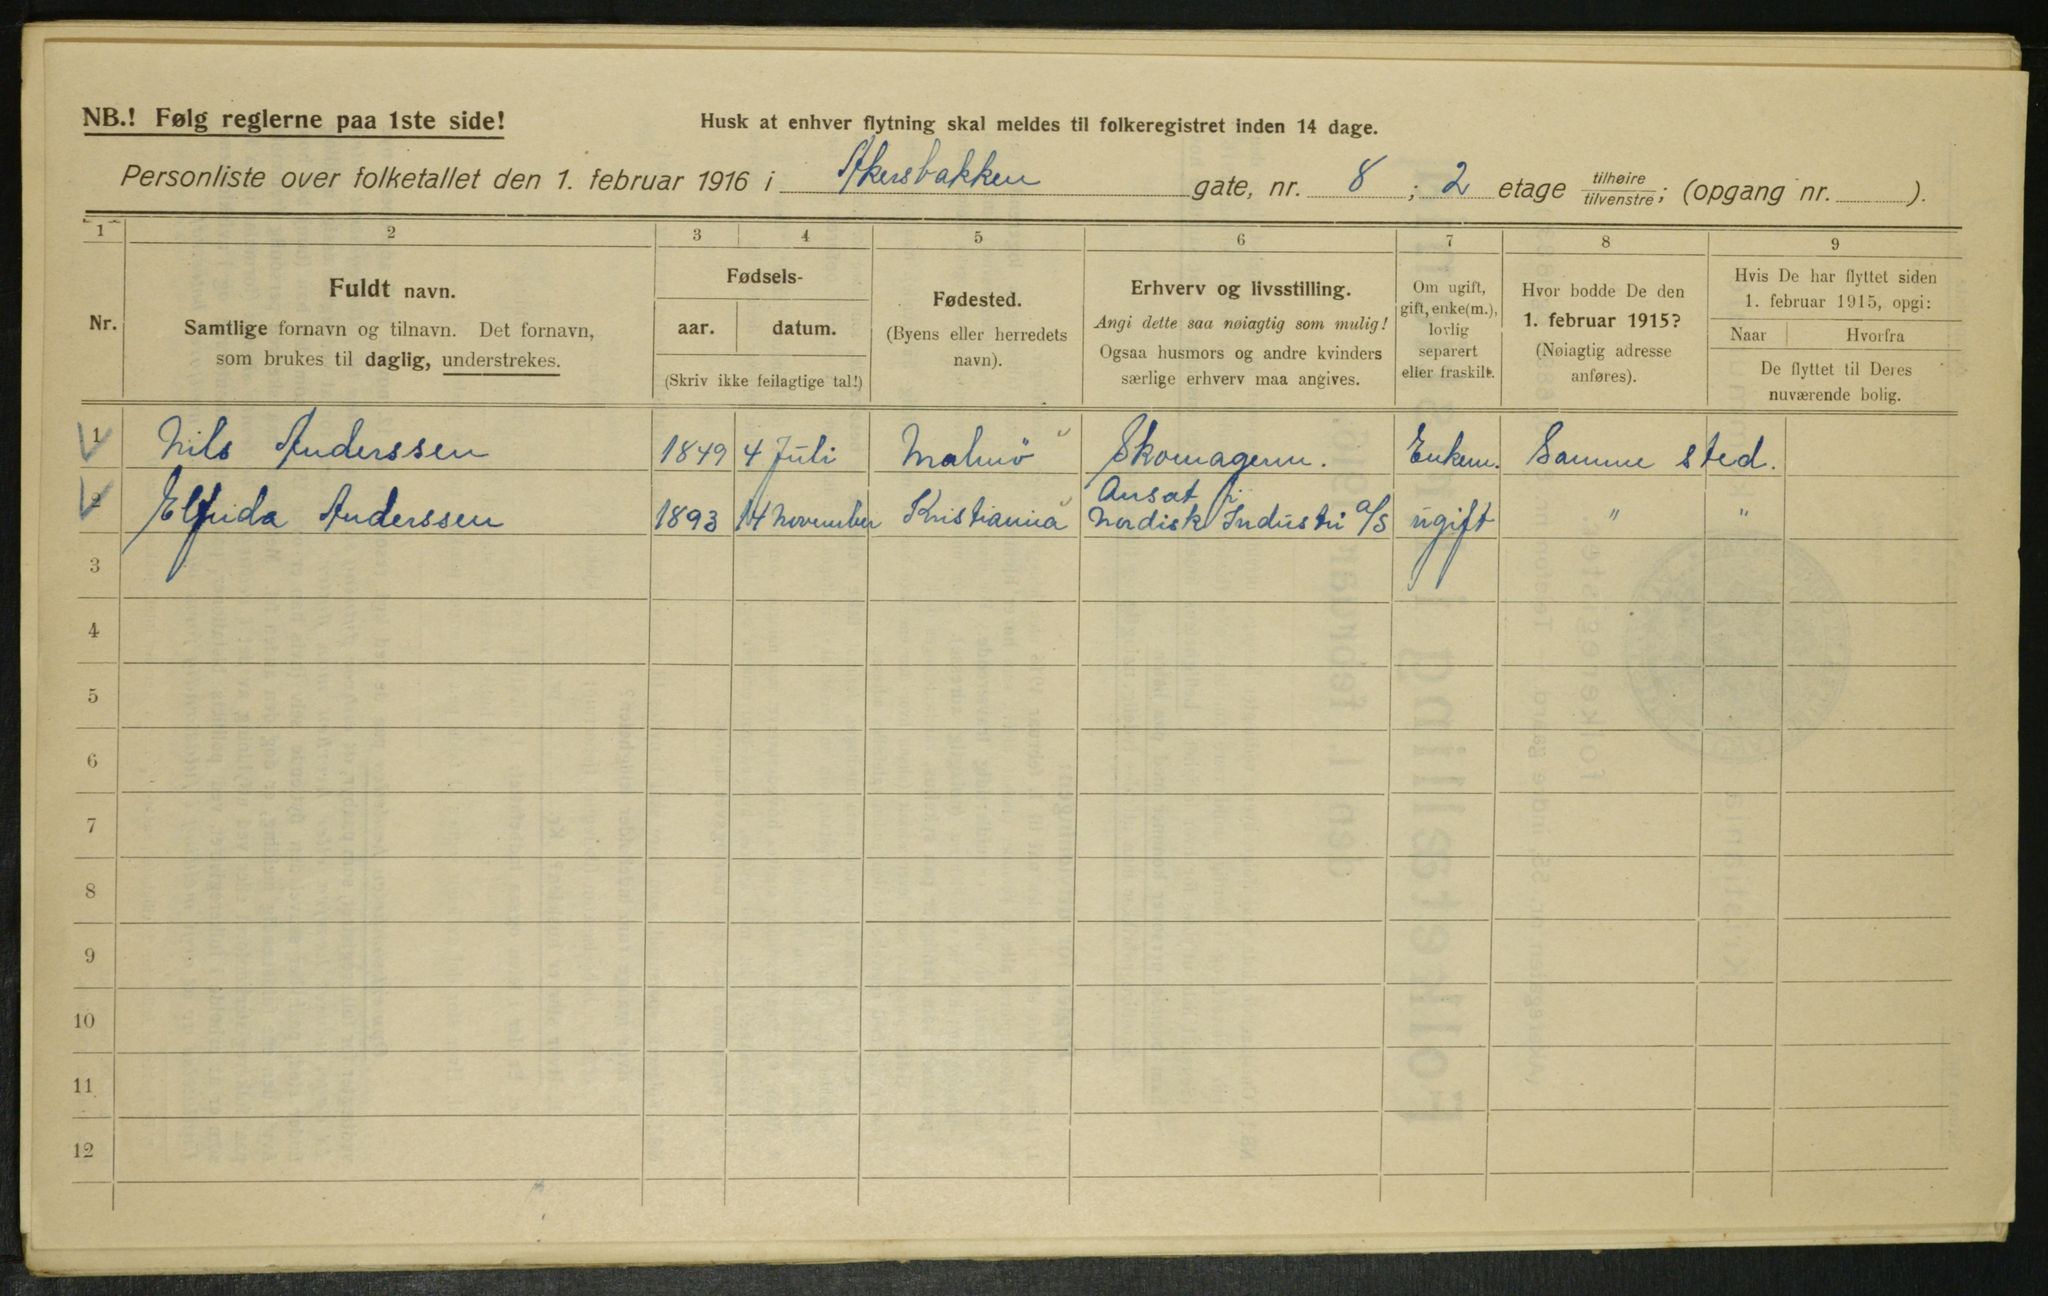 NB.! Følg reglerne paa 1ste side!
Husk at enhver flytning skal meldes til folkeregistret inden 14 dage.
Personliste over folketallet den 1. februar 1916 i Akersbakken gate, nr. 8 ; 2 etage tilhøire/tilvenstre; (opgang nr. ).
1 2 3 4 5 6 7 8 9
Nr.
Fuldt navn.
Samtlige fornavn og tilnavn. Det fornavn,
som brukes til daglig, understrekes.
Fødsels-
aar. datum.
(Skriv ikke feilagtige tal!)
Fødested.
(Byens eller herredets
navn).
Erhverv og livsstilling.
Angi dette saa nøiagtig som mulig!
Ogsaa husmors og andre kvinders
særlige erhverv maa angives.
Om ugift,
gift, enke(m.),
lovlig
separert
eller fraskilt.
Hvor bodde De den
1. februar 1915?
(Nøiagtig adresse
anføres).
Hvis De har flyttet siden
1. februar 1915, opgi:
Naar Hvorfra
De flyttet til Deres
nuværende bolig.
1 Nils Anderssen 1849 4 Juli Malmö Skomagerm. Enkem. Samme sted.
2 Elfrida Anderssen 1893 14 November Kristiania Ansat i Nordisk Industri A/S ugift " "
3
4
5
6
7
8
9
10
11
12